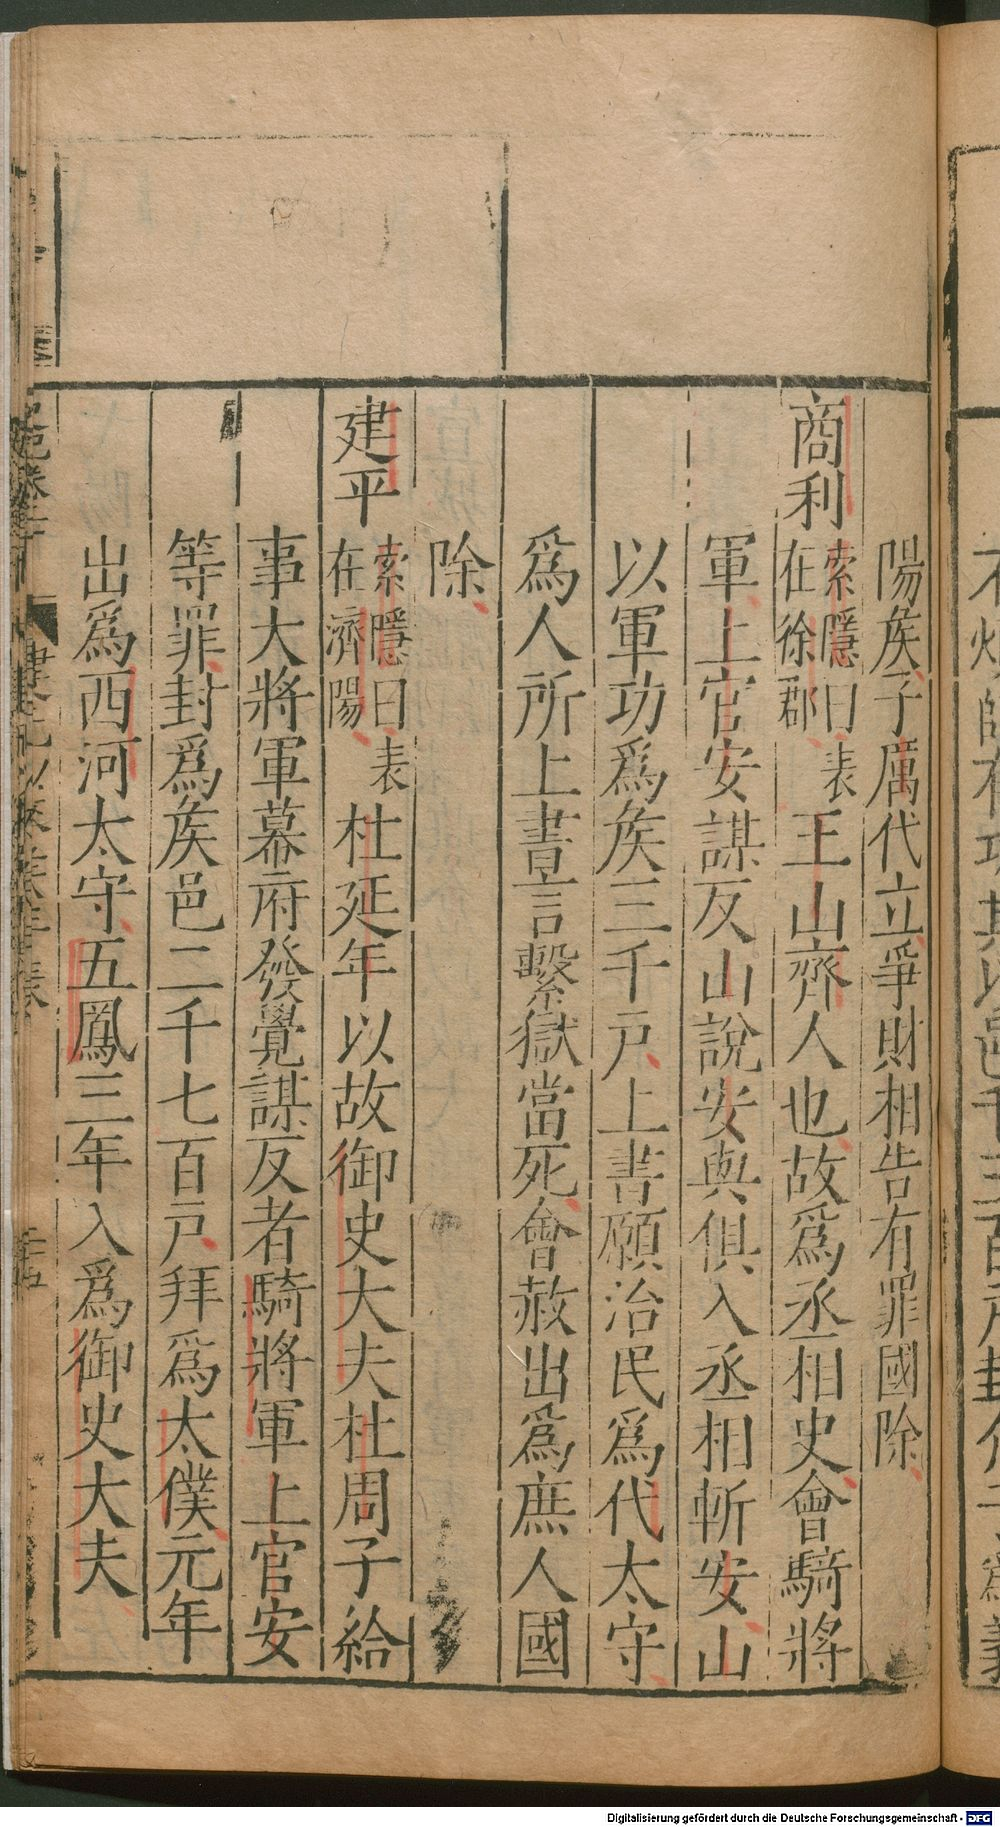 陽矦子厲代立爭財相告有罪國除
商利索隱曰表在徐郡王山齊人也故爲丞相史會騎將
軍上官安謀反山說安與俱入丞相斬安山
以軍功爲矦三千戸上書願治民爲代太守
爲人所上書言繫獄當死會赦出爲庶人國
除
建平索隱曰表在濟陽杜延年以故御史大夫杜周子給
事大將軍幕府發覺謀反者騎將軍上官安
等罪封爲矦邑二千七百戸拜爲太僕元年
出爲西河太守五鳳三年入爲御史大夫
Digitalisierung gefördert durch die Deutsche Forschungsgemeinschaft - DFG